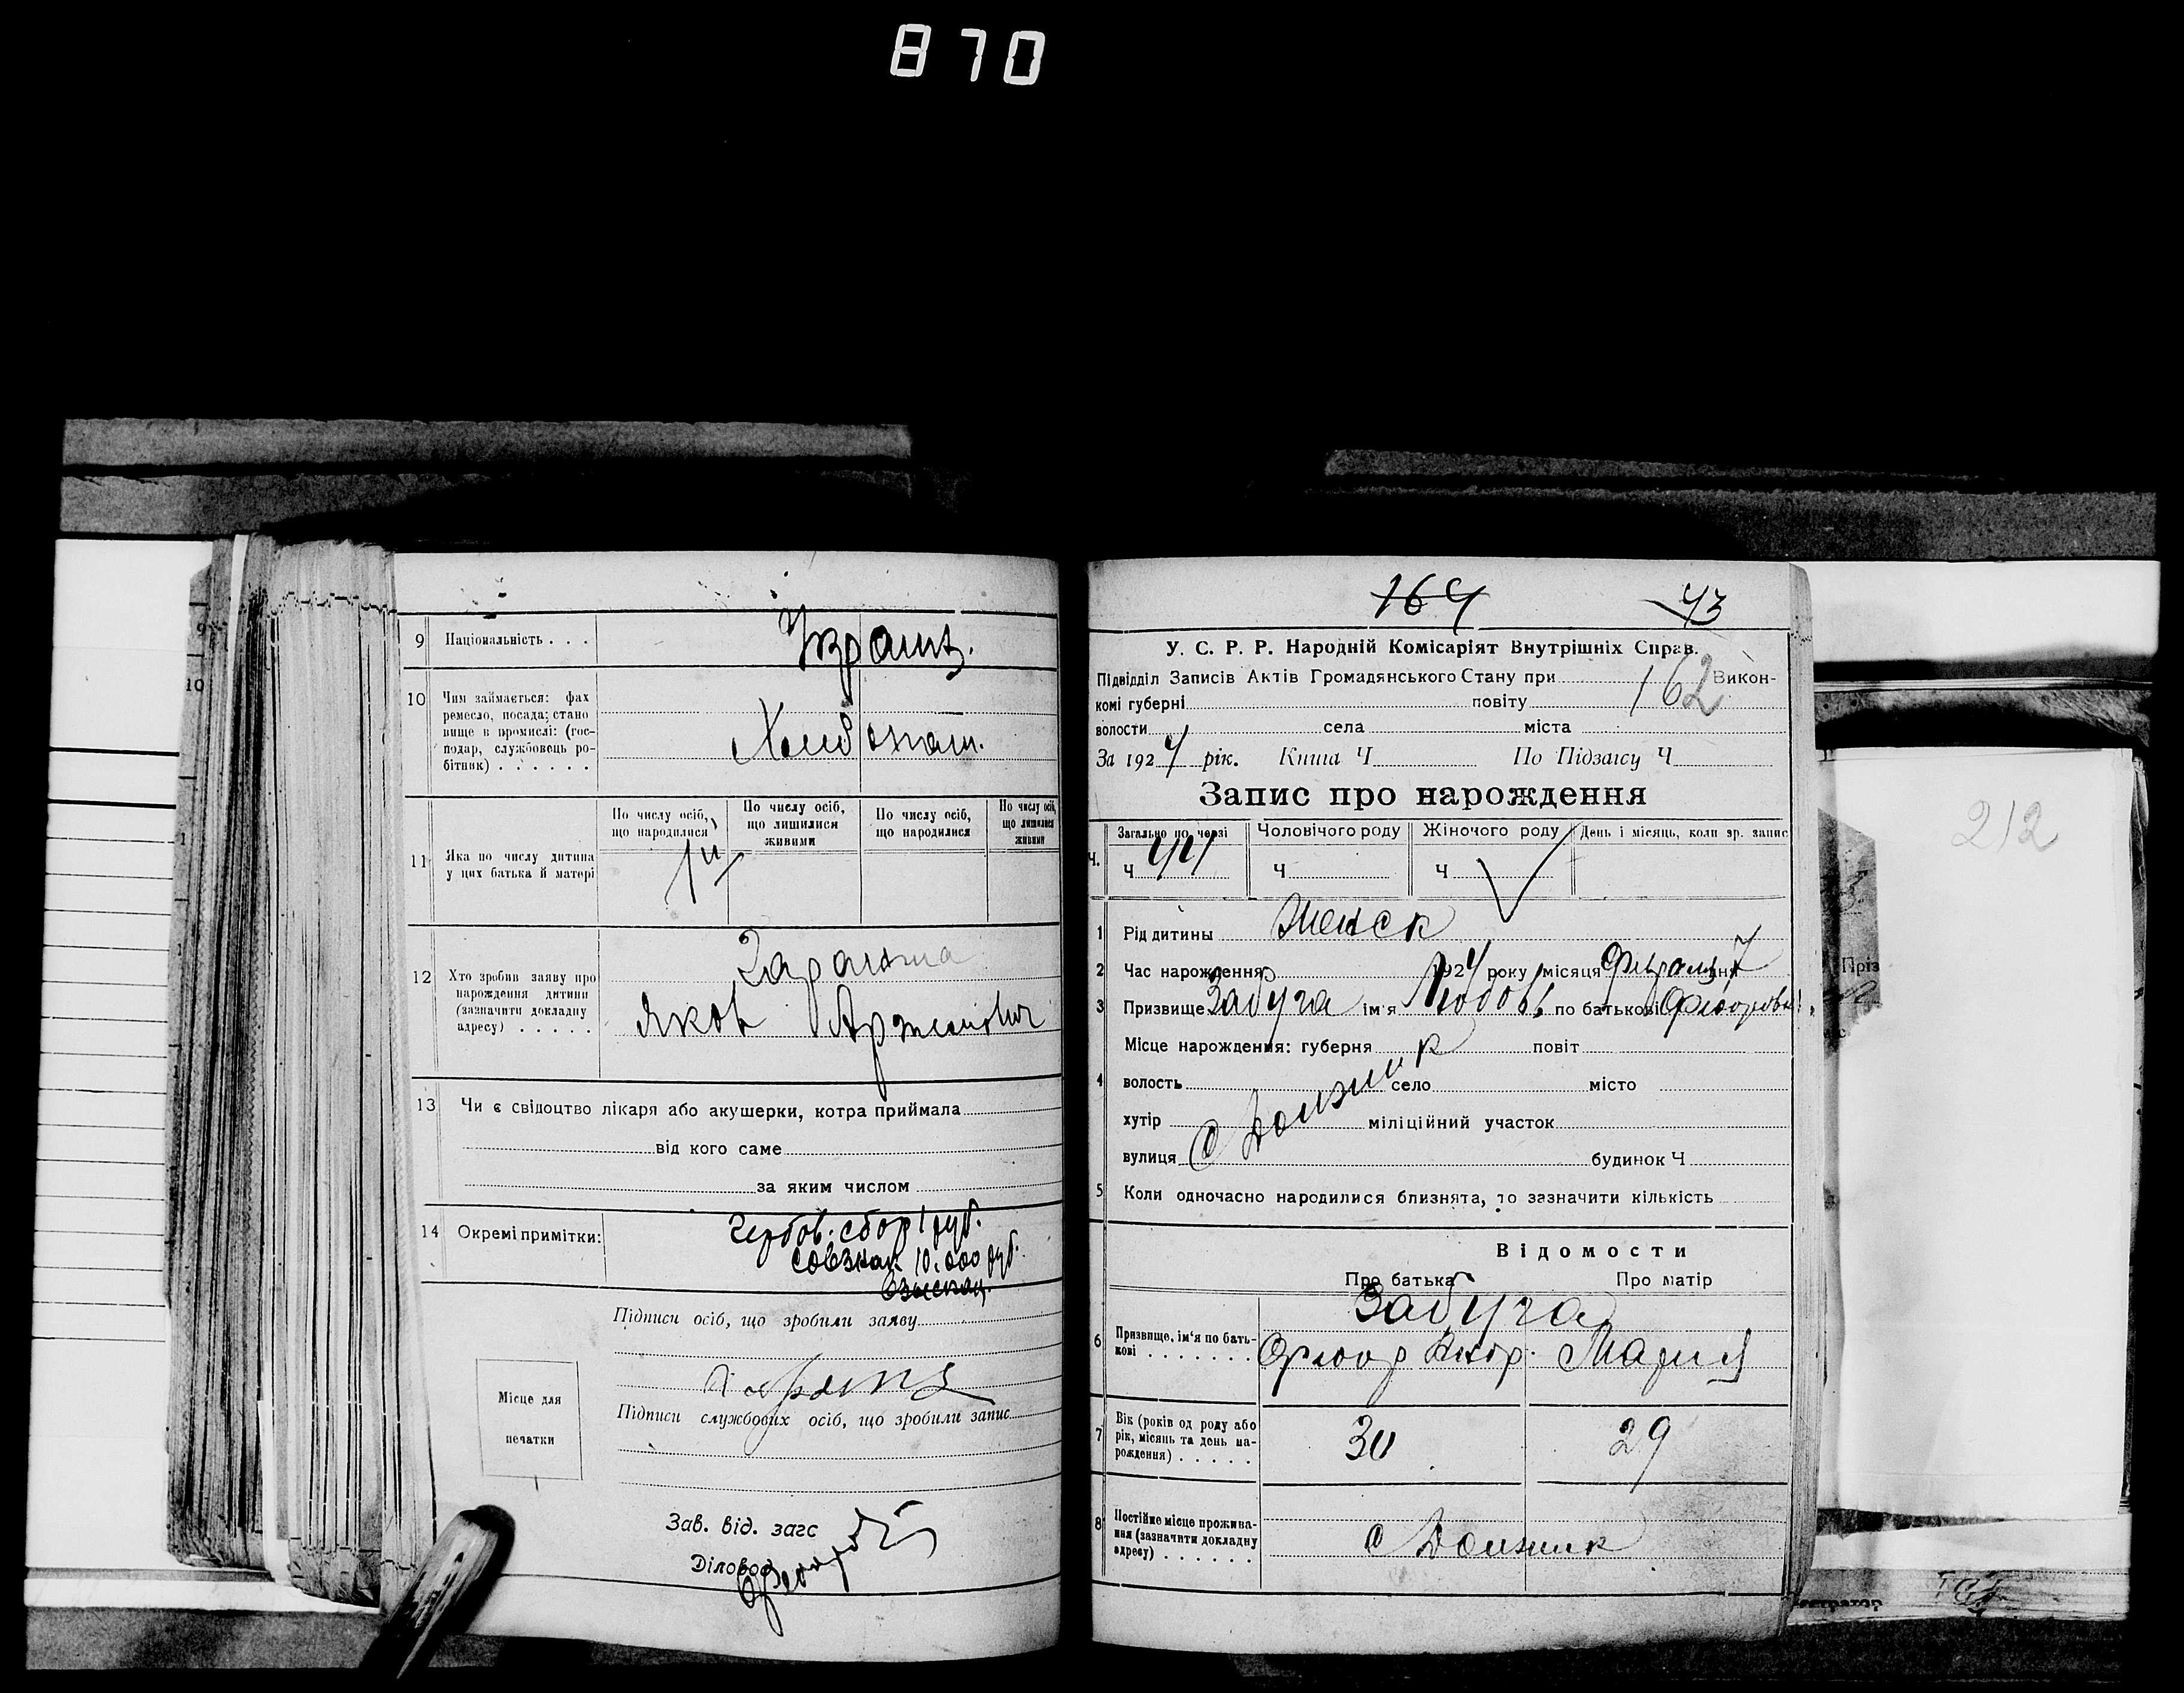 870
9 Національність . . .
Украин.
10 Чим займається: фах
ремесло, посада; стано
вище в промислі: (гос-
подар, службовець ро-
бітник) . . . . . .
11 Яка по числу дитина
у цих батька й матері
По числу осіб,
що народилися
По числу осіб,
що лишилися
живими
По числу осіб,
що народилися
По числу осіб,
що лишилися
живими
12 Хто зробив заяву про
нарождення дитини
(зазначити докладну
адресу) . . . . .
Яков
13 Чи є свідоцтво лікаря або акушерки, котра приймала
від кого саме
за яким числом
14 Окремі примітки:
гербов. сбор 1 руб.
Совзнак 10.000 руб.
Взыскан.
Підписи осіб, що зробили заяву
Місце для
печатки
Підписи службових осіб, що зробили запис
Зав. від. загс
Діловод
164 43
У. С. Р. Р. Народній Комісаріят Внутрішніх Справ.
Підвідділ Записів Актів Громадянського Стану при 162 Викон-
комі губерні повіту
волости села міста
За 1924 рік. Книга Ч По Підзаґсу Ч
Запис про нарождення
Ч. Загально по черзі Чоловічого роду Жіночого роду День і місяць, коли зр. запис
Ч 44 Ч Ч
1 Рід дитини Женск
2 Час нарождення 1924 року місяця дня 7
3 Призвище Забуга ім'я Любовь по батькові
4 Місце нарождення: губерня повіт
волость село місто
хутір міліційний участок
вулиця будинок Ч
5 Коли одночасно народилися близнята, то зазначити кількість
Відомости
Про батька Про матір
6 Призвище, ім'я по бать-
кові . . . . . . .
Забуга
Мария
7 Вік (років од роду або
рік, місяць та день на-
рождення) . . . . .
30 29
8 Постійне місце прожива-
ння (зазначити докладну
адресу) . . . . . .
212